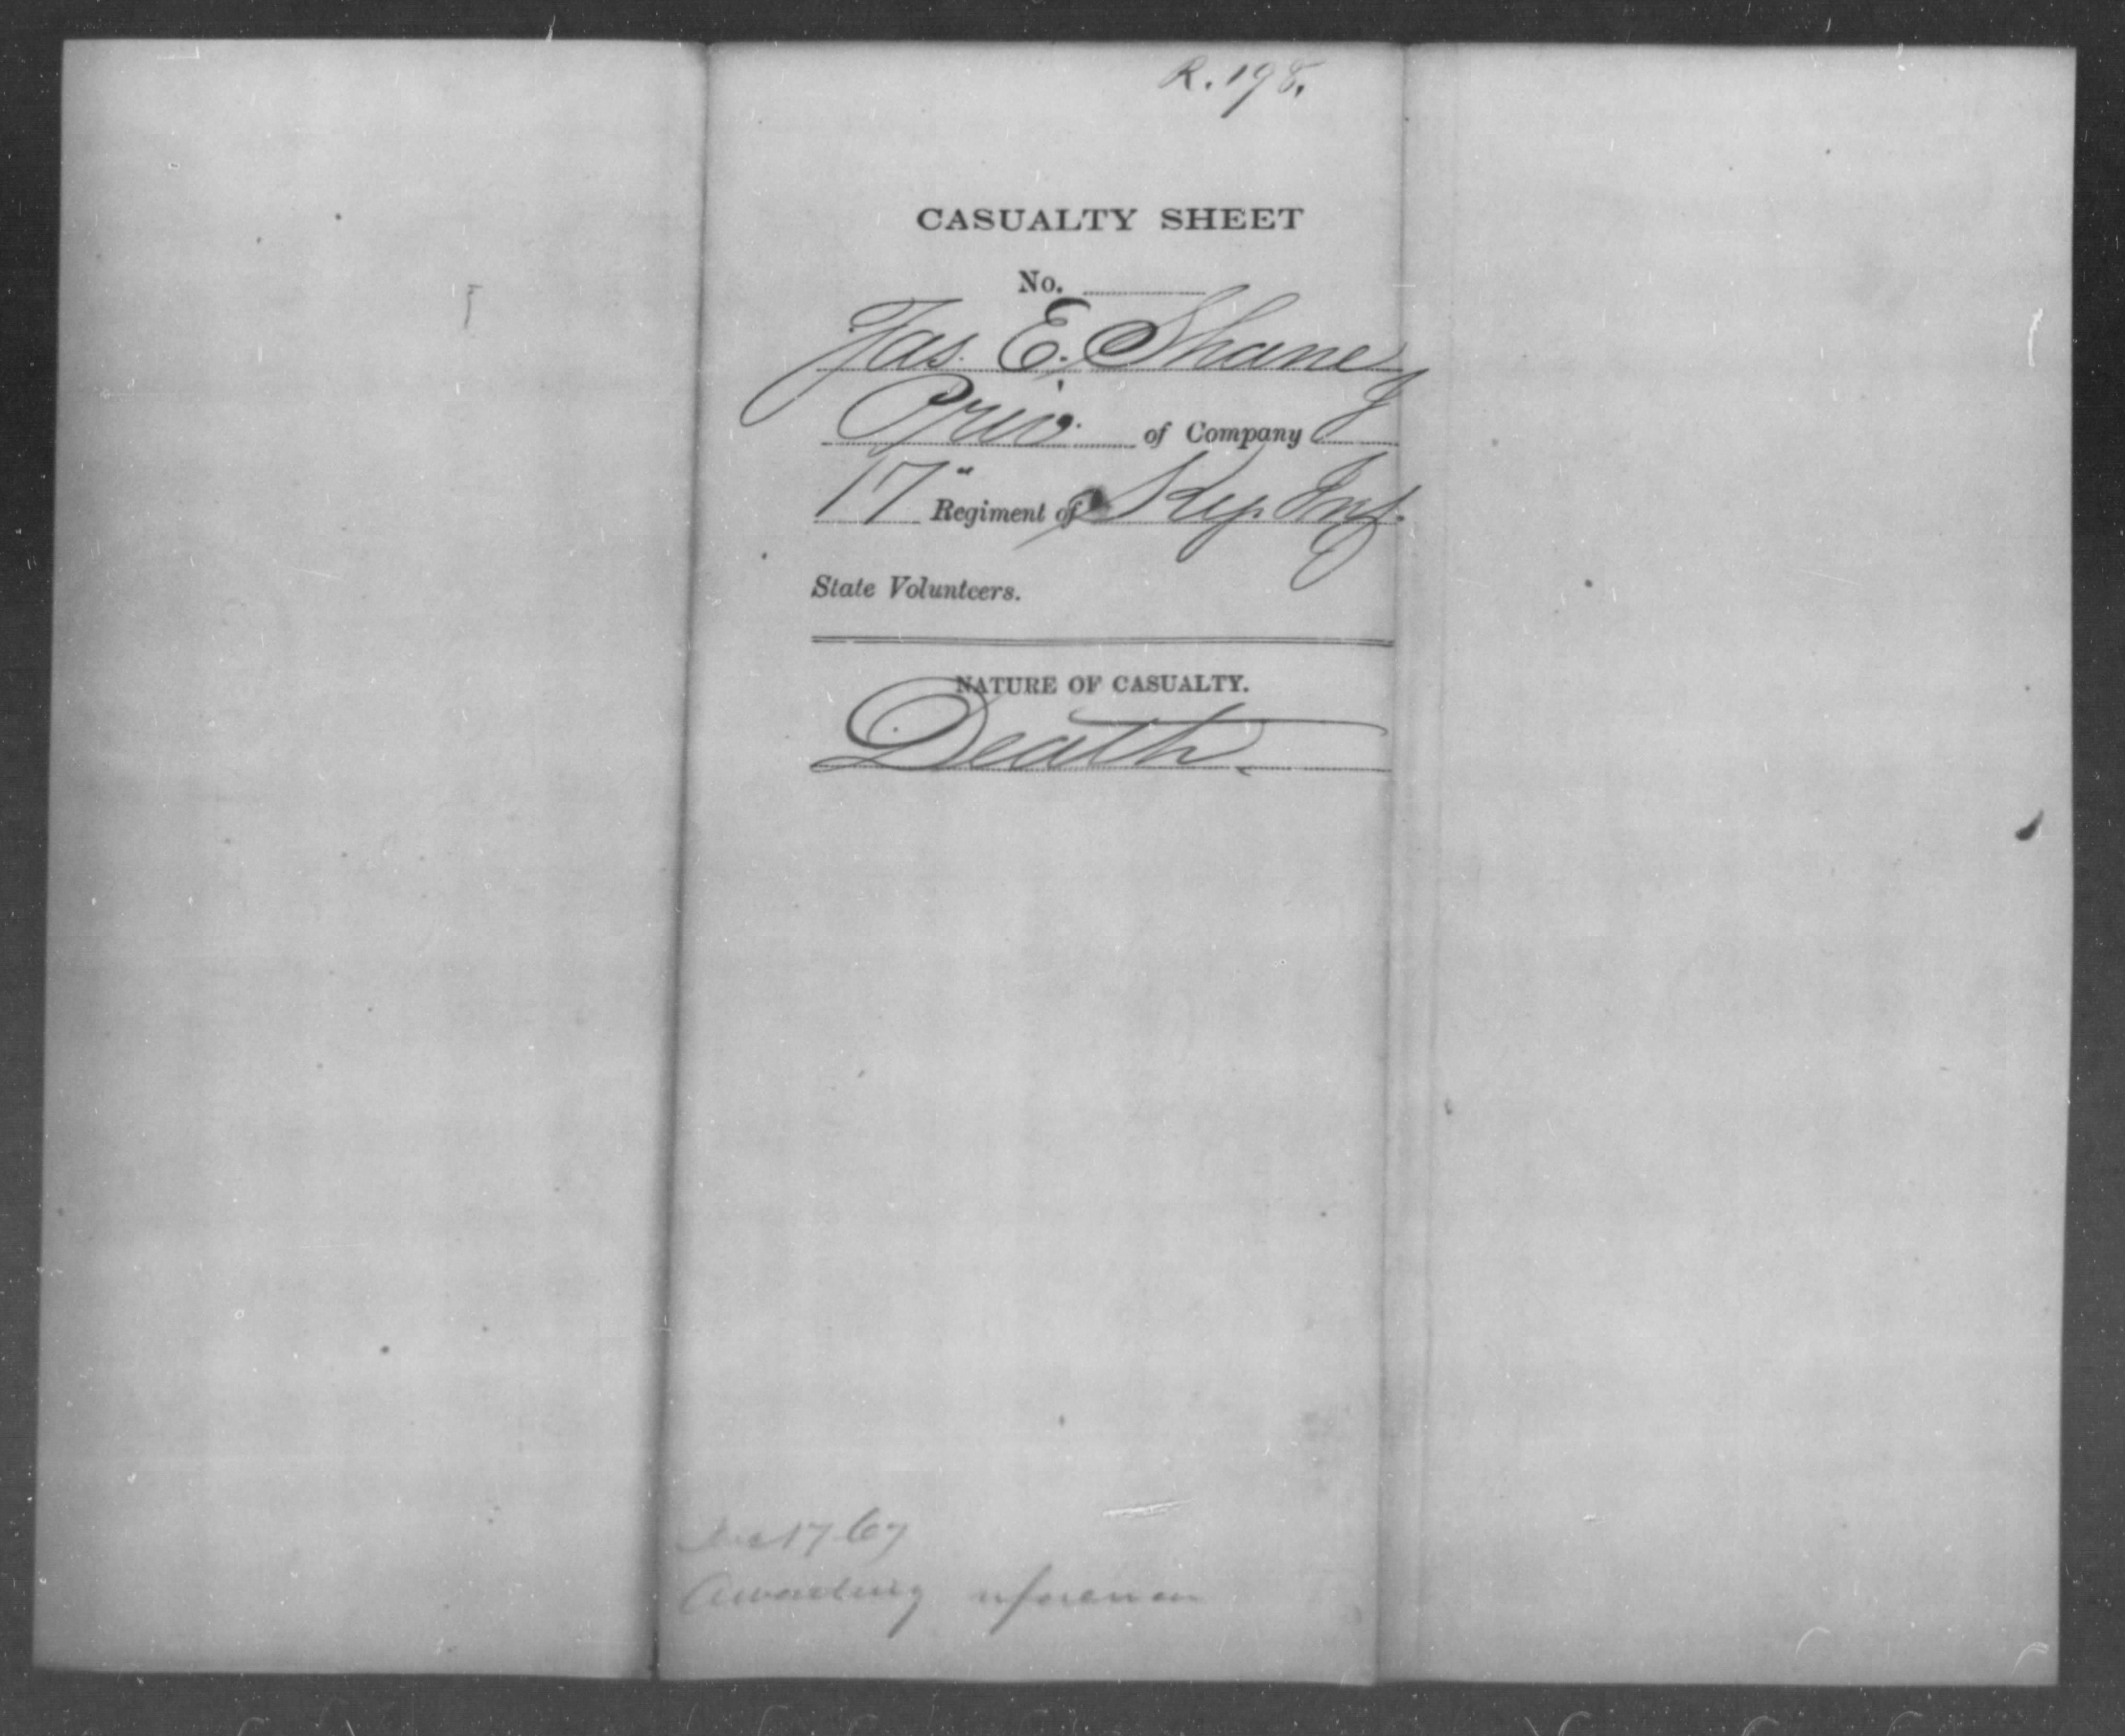 R. 198.
CASUALTY SHEET
No.
Jas. E. Shane
Priv. of Company I
17" Regiment of Ky. Inf.
State Volunteers.
NATURE OF CASUALTY.
Death.
17 67
Awaiting